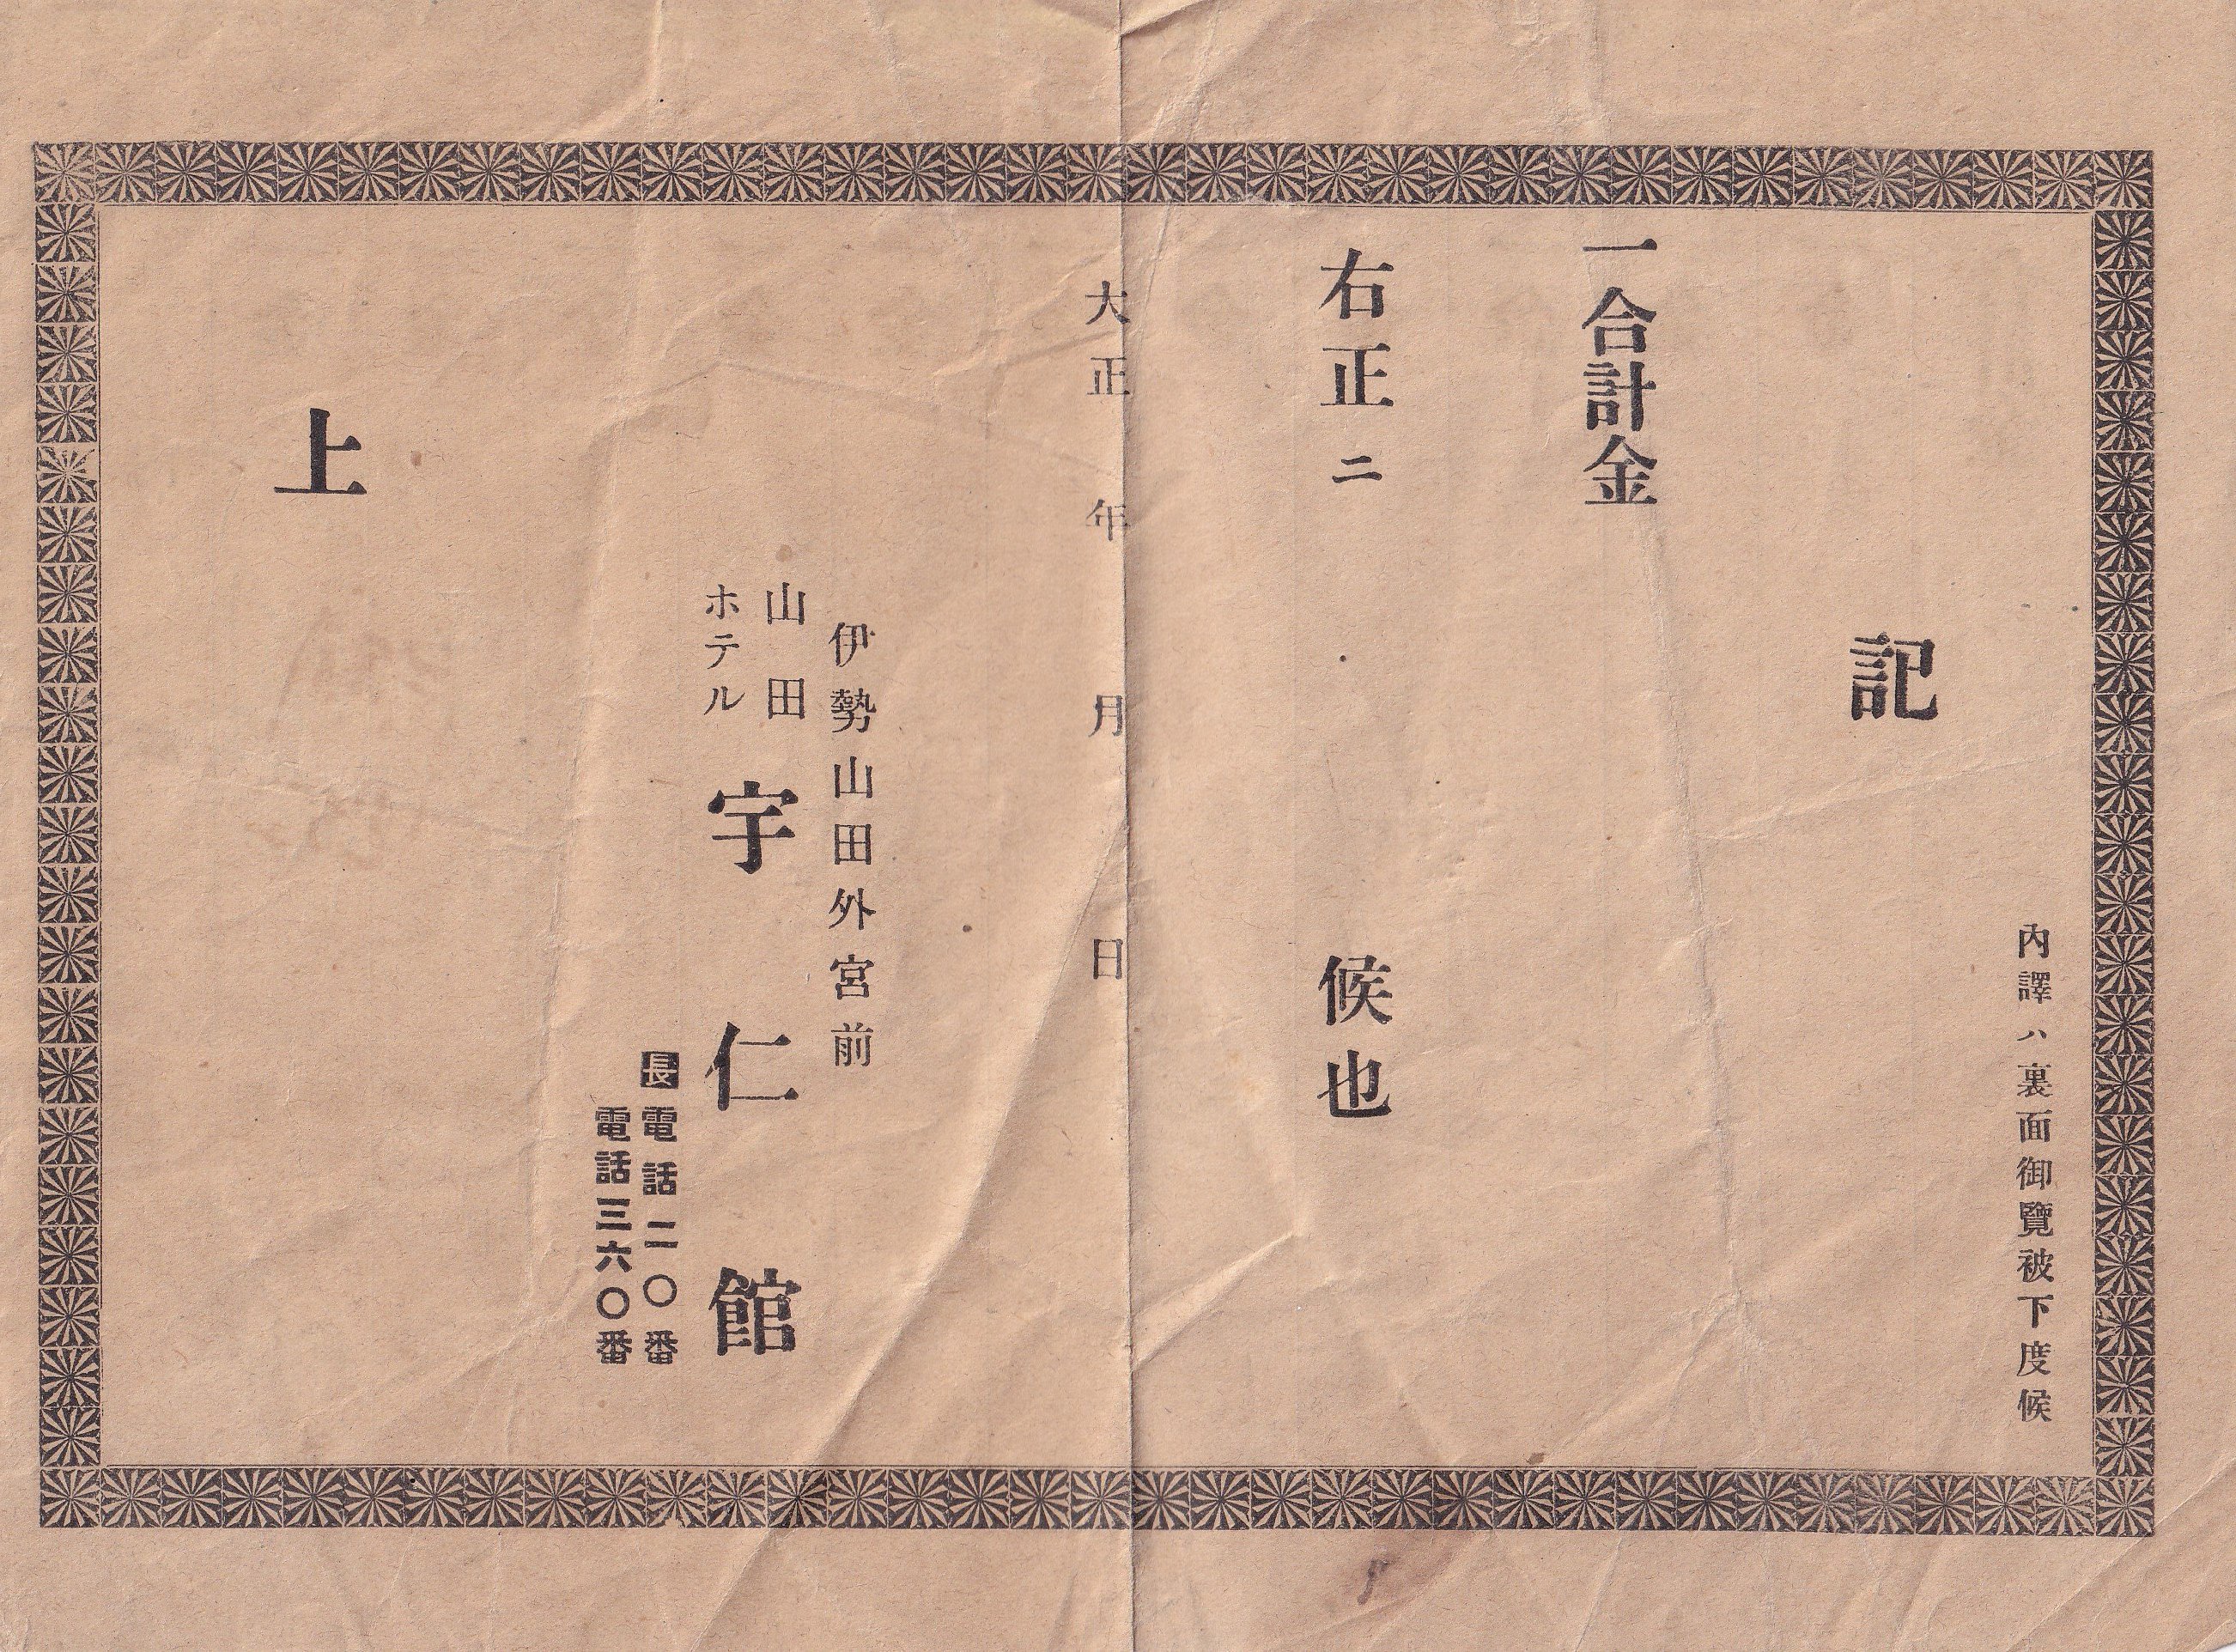 內譯ハ裏面御覽被下度候
記
一合計金
右正ニ 候也
大正 年 月 日
伊勢山田外宮前
山田
ホテル
宇仁館
長電話二〇番
電話三六〇番
上